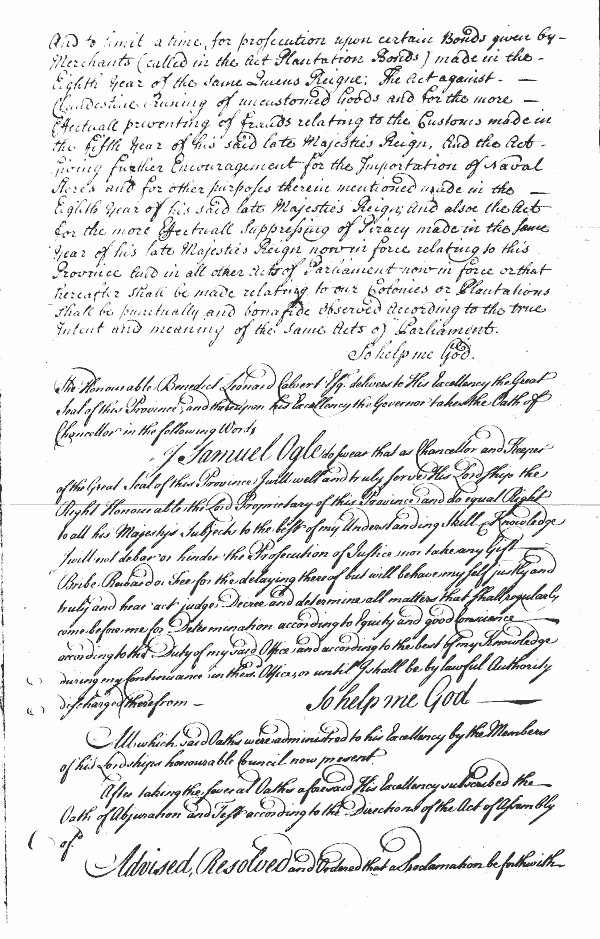 And to limit a time, for prosecution upon certain Bonds given by
Merchants (called in the Act Plantation Bonds) made in the
Eighth Year of the same Queens Reigne; The Act against
Clandestine Runing of uncustomed Goods and for the more
Effectuall preventing of frauds relating to the Customs made in
the fifth Year of his said late Majesties Reign, And the Act
Giving further Encouragement for the Importation of Naval
Stores and for other purposes therein mentioned made in the
Eighth Year of his said late Majesties Reign; And alsoe the Act
for the more Effectuall Suppressing of Piracy made in the same
Year of his late Majesties Reign now in force relating to this
Province And in all other Acts of Parliament now in force or that
hereafter shall be made relating to our Colonies or Plantations
shall be punctually and bonafide observed according to the true
Intent and meaning of the same Acts of Parliament.
So help me God.
The Honourable Benedict Leonard Calvert Esqr. delivers to His Excellency the Great
Seal of this Province, and thereupon his Excellency the Governor takes the Oath of
Chancellor in the following Words
I Samuel Ogle do swear that as Chancellor and Keeper
of the Great Seal of this Province I will well and truly serve His Lordship the
Right Honourable the Lord Proprietary of this Province and do equal Right
to all his Majestys Subjects to the best of my Understanding Skill & Knowledge
I will not debar or hinder the Prosecution of Justice nor take any Gift
Bribe Reward or Fee for the delaying thereof but will behave my self justly and
truly and hear act judge Decree and determine all matters that shall regularly
come before me for Determination according to Equity and good Consience
according to the Duty of my said Office and according to the best of my Knowledge
during my Continuance in these Offices or until I shall be by lawful Authority
discharged therefrom — So help me God —
All which said Oaths were administred to his Excellency by the Members
of his Lordships honourable Council now present.
After taking the several Oaths aforesaid His Excellency subscribed the
Oath of Abjuration and Test according to the Directions of the Act of Assembly
Advised, Resolved and Ordered that a Proclamation be forthwith